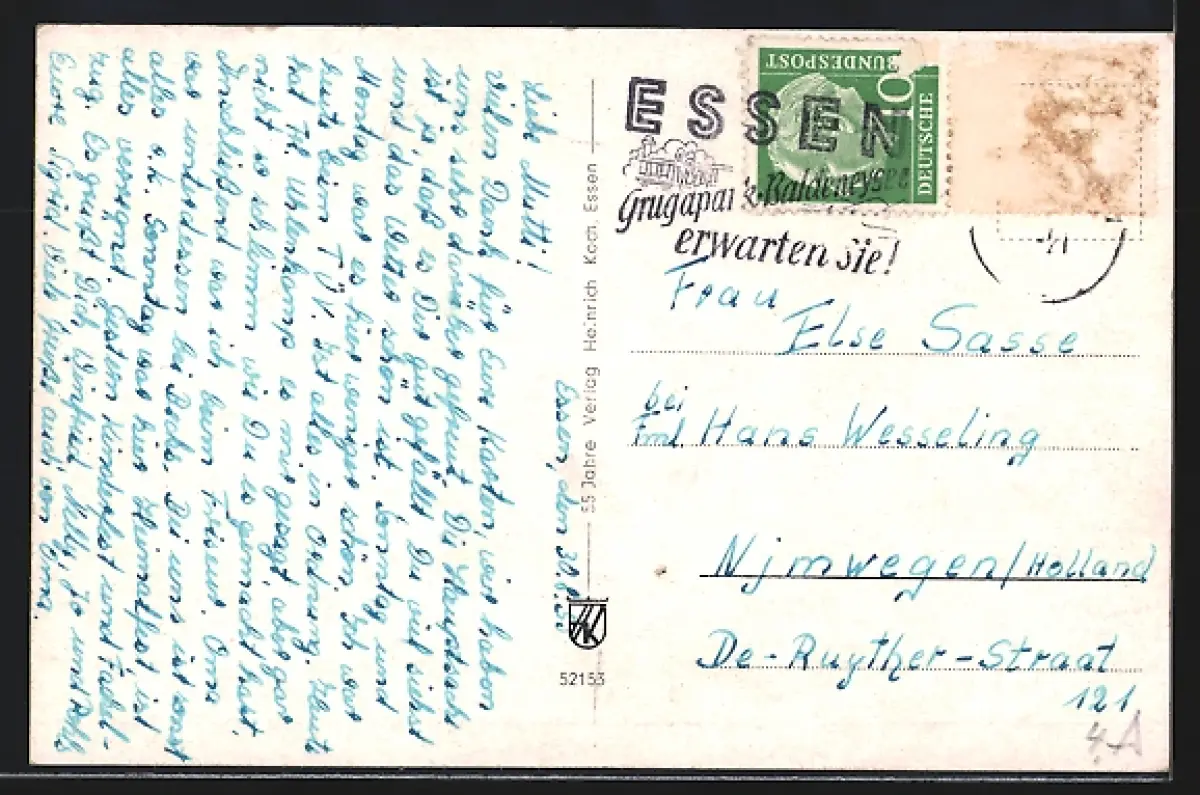 Essen, den 30.
Liebe Mutti!
Vielen Dank für Eure Karten, wir haben
uns sehr darüber gefreut. Die Hauptsache
ist ja, daß es Dir gut gefällt Du viel siehst
und das Wetter schön ist. Sonntag und
Montag war es hier weniger schön. Ich war
heute beim TÜV. Ist alles in Ordnung. Heute
hat Th. Uhlenkamp es mir gesagt aber gar
nicht so schlimm wie Du es gemacht hast.
Anschließend war ich beim Friseur. Oma
war unterdessen bei Becks. Bei uns ist sonst
alles o.k. Sonntag was hier Heimatfest, ist
alles verregnet. Gestern Kinderfest und Fackel-
zug. Es grüßt Dich, Winfried, Nelly, Jo und
Eure Sigrid. Viele Grüße auch von Oma.
55 Jahre Verlag Heinrich Koch, Essen
HK
52153
DEUTSCHE
BUNDESPOST
10
ESSEN
Grugapark & Baldeneysee
erwarten Sie!
Frau
Else Sasse
bei
Fml Hans Wesseling
Njmwegen/Holland
De-Ruyther-Straat
121
4A